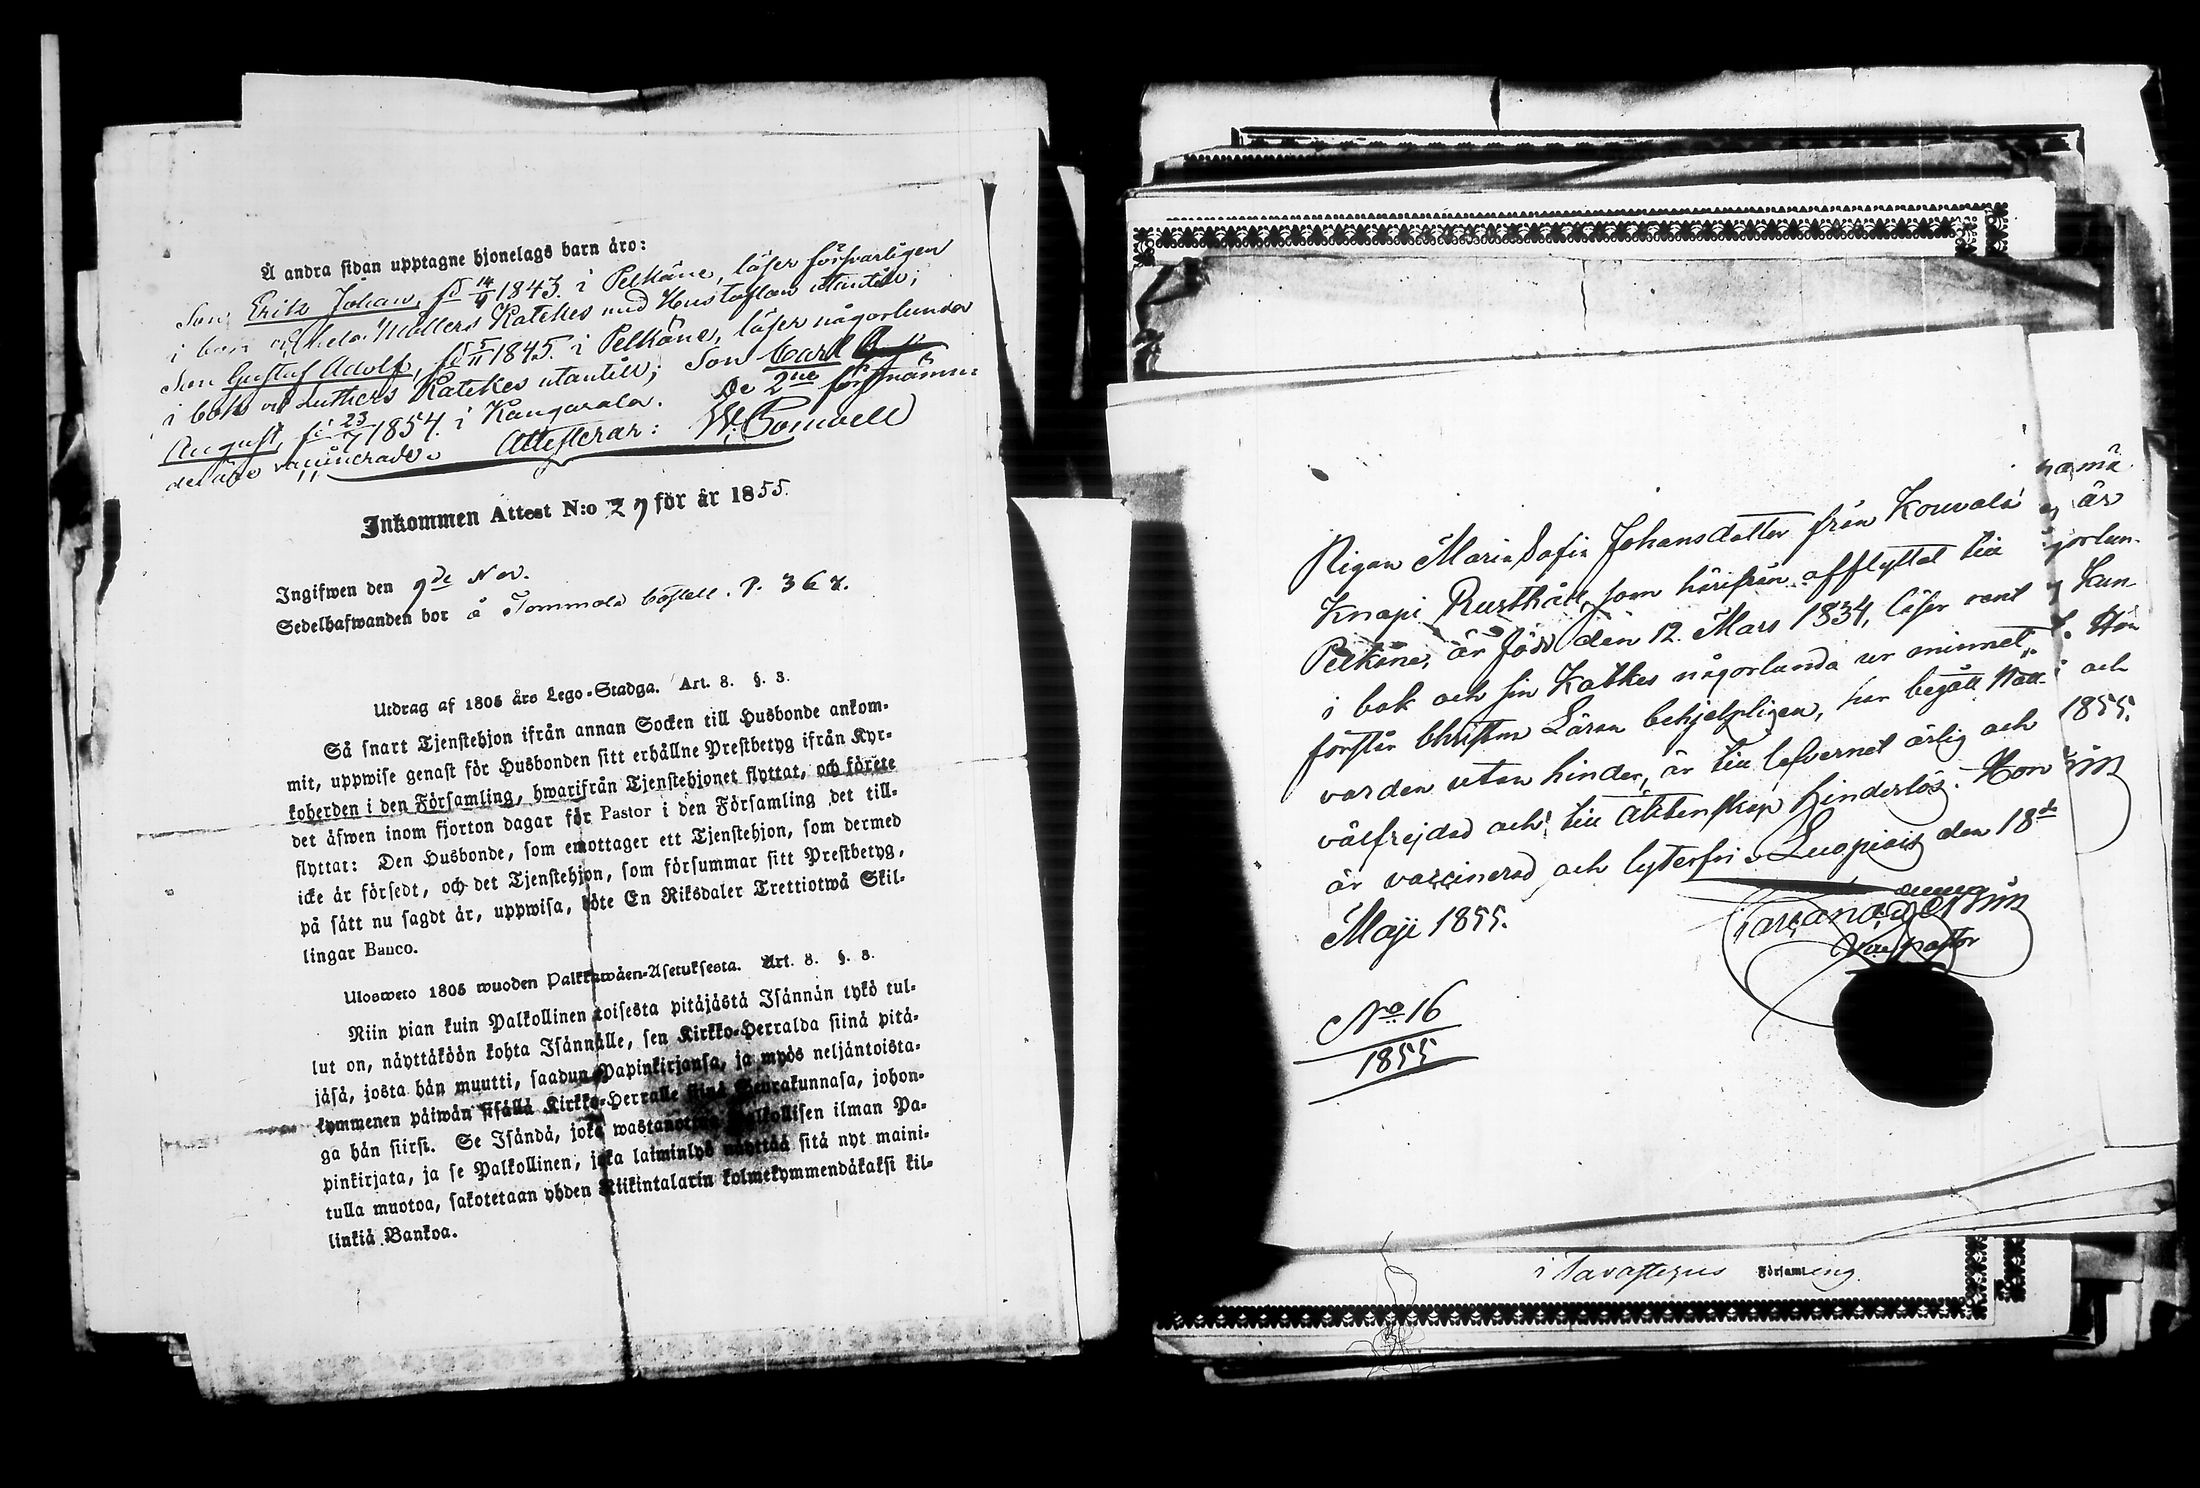 Å andra sidan upptagne hjonelags barn äro:
Son Erik Johan, fd 14/4 1843. i Pelkäne, läser försvarligen
i bok och hela Möllers Katekes med Hustaflan utantill;
Son Gustaf Adolf, fd 5/11 1845. i Pelkäne, läser någorlunda
i bok och Luthers Katekes utantill; Son Carl
August, fd 23/7 1854. i Kangasala. De 2ne förstnämn-
de äro vaccinerade. Attesterar:
Inkommen Attest N:o 27 för år 1855.
Ingifwen den 9de Nov.
Sedelhafwanden bor å Tommola Boställ. P. 367.
Utdrag af 1805 års Lego-Stadga. Art. 8. §. 3.
Så snart Tjenstehjon ifrån annan Socken till Husbonde ankom-
mit, uppwise genast för Husbonden sitt erhållne Prestbetyg ifrån Kyr-
koherden i den Församling, hwarifrån Tjenstehjonet flyttat, och förete
det äfwen inom fjorton dagar för Pastor i den Församling det till-
flyttat: Den Husbonde, som emottager ett Tjenstehjon, som dermed
icke är försedt, och det Tjenstehjon, som försummar sitt Prestbetyg,
på sätt nu sagdt är, uppwisa, böte En Riksdaler Trettiotwå Skil-
lingar Banco.
Ulosweto 1805 wuoden Palkkawäen-Asetuksesta. Art. 8. §. 3.
Niin pian kuin Palkollinen toisesta pitäjästä Isännän tykö tul-
lut on, näyttäköön kohta Isännälle, sen Kirkko-Herralda siinä pitä-
jäsä, josta hän muutti, saadun Papinkirjansa, ja myös neljäntoista-
kymmenen päiwän sisällä Kirkko-Herralle siinä Seurakunnasa, johon-
ga hän siirsi. Se Isändä, joka wastanottaa Palkollisen ilman Pa-
pinkirjata, ja se Palkollinen, joka laiminlyö näyttää sitä nyt maini-
tulla muotoa, sakotetaan yhden Riikintalarin kolmekymmendäkaksi kil-
linkiä Bankoa.
Pigan Maria Sofia Johansdotter från Kouvala
Knapi Rusthåll, som härifrån afflyttat till
Pelkäne, är född den 12. Mars 1834, läser rent
i bok och sin Katkes någorlunda ur minnet,
förstår Christna Läran behjelpligen, har begått Natt-
varden utan hinder, är till lefvernet ärlig och
välfrejdad och till äktenskap hinderlös. Hon
är vaccinerad och lyterfri. Luopiois den 18de
Maji 1855.
Vice pastor
No 16
1855
är
Kan
Hon
och
1855.
i Tavastehus Församling.